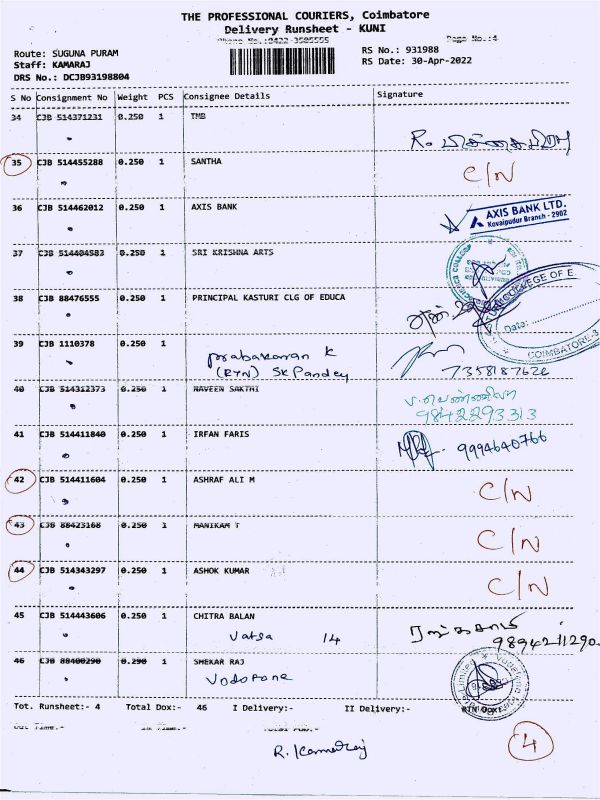 THE PROFESSIONAL COURIERS, Coimbatore
Delivery Runsheet - KUNI
Phone No.:0422-3585555 Page No.:4
Route: SUGUNA PURAM RS No.: 931988
Staff: KAMARAJ RS Date: 30-Apr-2022
DRS No.: DCJB93198804
S No Consignment No Weight PCS Consignee Details Signature
34 CJB 514371231 0.250 1 TMB
35 CJB 514455288 0.250 1 SANTHA C/N
36 CJB 514462012 0.250 1 AXIS BANK AXIS BANK LTD.
Kovaipudur Branch - 2902
37 CJB 514404583 0.250 1 SRI KRISHNA ARTS
38 CJB 88476555 0.250 1 PRINCIPAL KASTURI CLG OF EDUCA
COLLEGE OF E.
Date:
COIMBATORE-3
39 CJB 1110378 0.250 1 prabakaran K
(RTN) SK Pandey
40 CJB 514312373 0.250 1 NAVEEN SAKTHI
9842293313
41 CJB 514411840 0.250 1 IRFAN FARIS 9994640766
42 CJB 514411604 0.250 1 ASHRAF ALI M C/N
43 CJB 88423168 0.250 1 MANIKAM T C/N
44 CJB 514343297 0.250 1 ASHOK KUMAR C/N
45 CJB 514443606 0.250 1 CHITRA BALAN
Vatsa 14 9894211290
46 CJB 88400290 0.290 1 SHEKAR RAJ
Vodofone
Tot. Runsheet:- 4 Total Dox:- 46 I Delivery:- II Delivery:-
Out Time:- In Time.-
4
R. Kamaraj